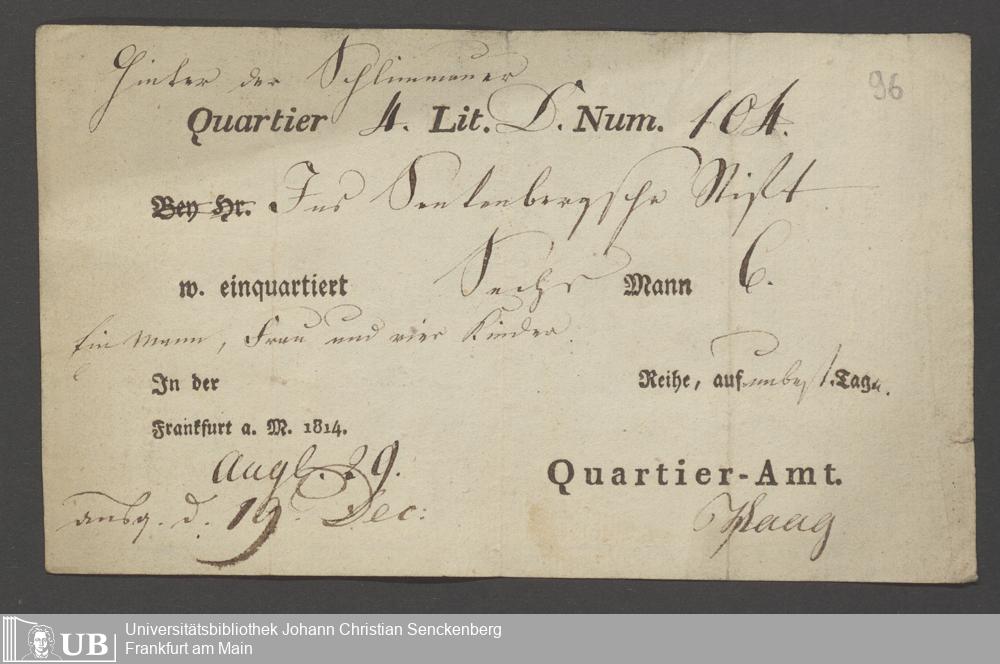 Hinter der Schlimmauer
96
Quartier 4. Lit. D. Num. 104.
Bey Hr. Ins Senkenbergsche Stift
w. einquartiert Sechs Mann 6.
Ein Mann, Frau und vier Kinder.
In der Reihe, auf unbest. Tage.
Frankfurt a. M. 1814.
Augt. 29.
Quartier-Amt.
ausg. d. 19 Dec:
Haag
UB Universitätsbibliothek Johann Christian Senckenberg
Frankfurt am Main